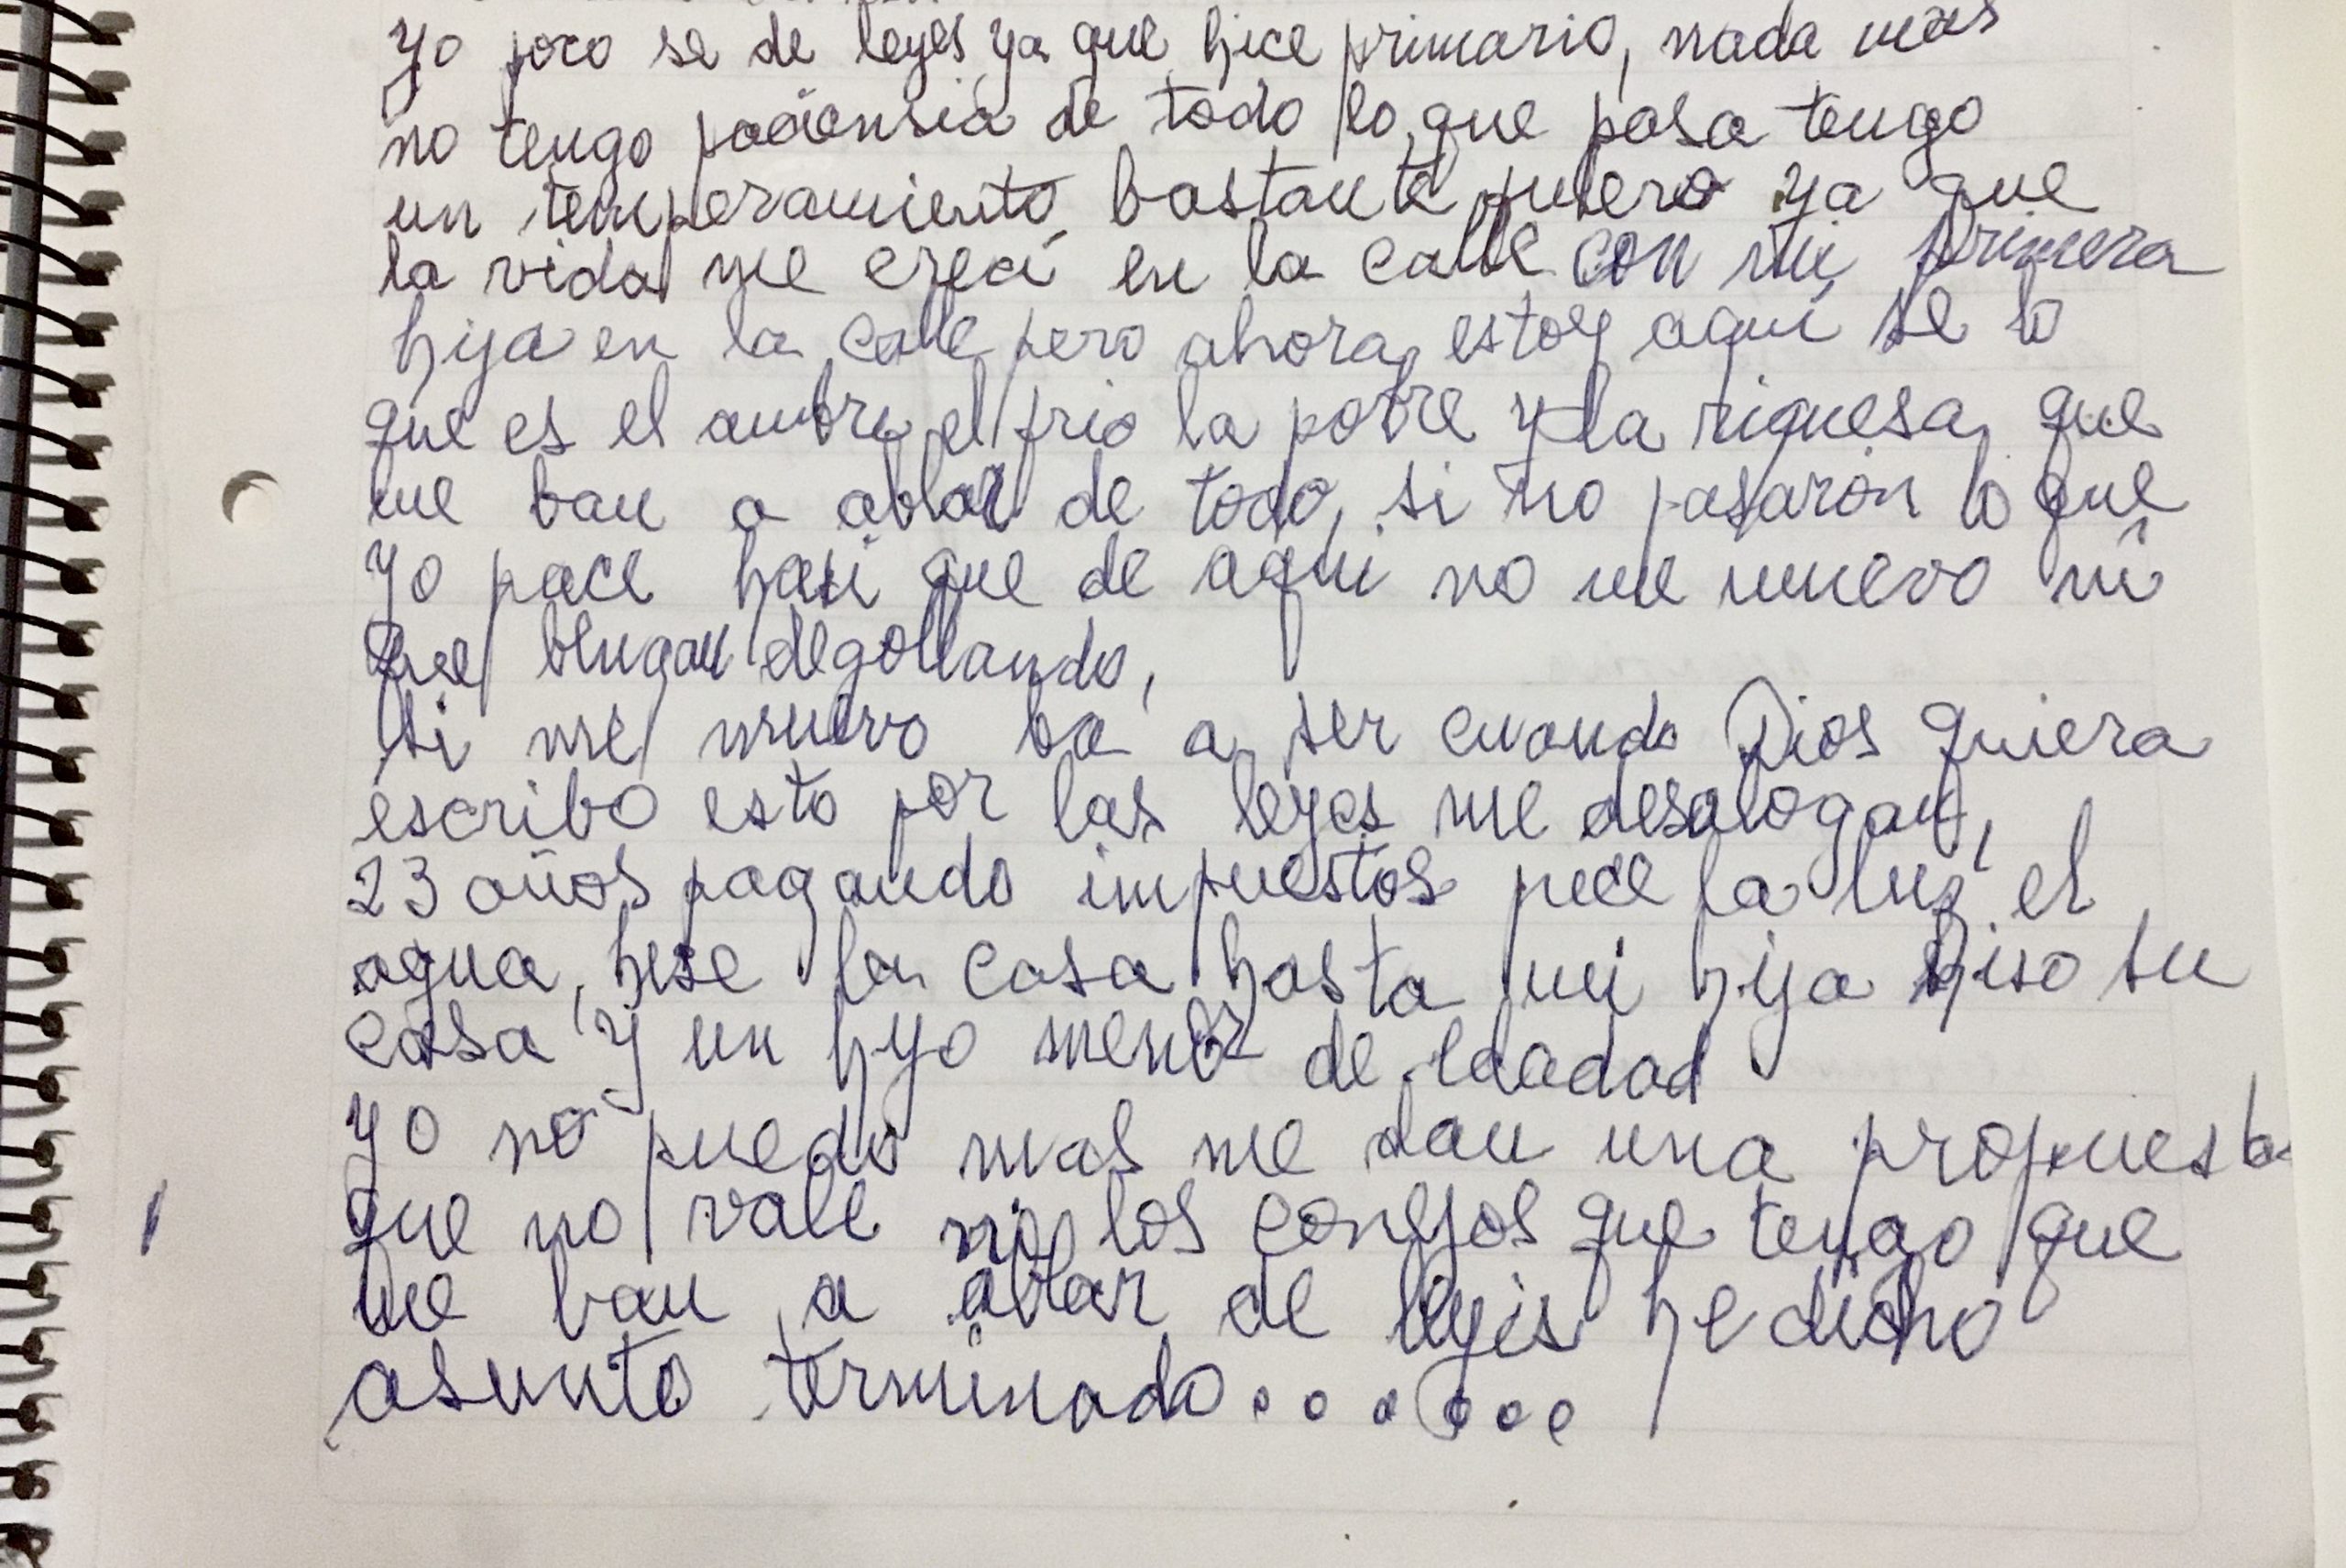 yo poco se de leyes ya que hice primario, nada mas
no tengo paciensia de todo lo que pasa tengo
un temperamiento bastante ya que
la vida me creci en la calle con mi primera
hija en la calle pero ahora estoy aqui se lo
que es el ambre el frio la pobre y la riquesa que
me ban a ablar de todo, si no pasaron lo que
yo pace hasi que de aqui no me muevo ni
que bengan degollando,
si me muevo ba a ser cuando Dios quiera
escribo esto por las leyes me desalogan,
23 años pagando impuestos puce la luz el
agua, hise la casa hasta mi hija hiso su
casa y un hijo menor de edadad
yo no puedo mas me dan una propuesta
que no vale ni los conejos que tengo que
me ban a ablar de leyis he dicho
asunto terminado.......